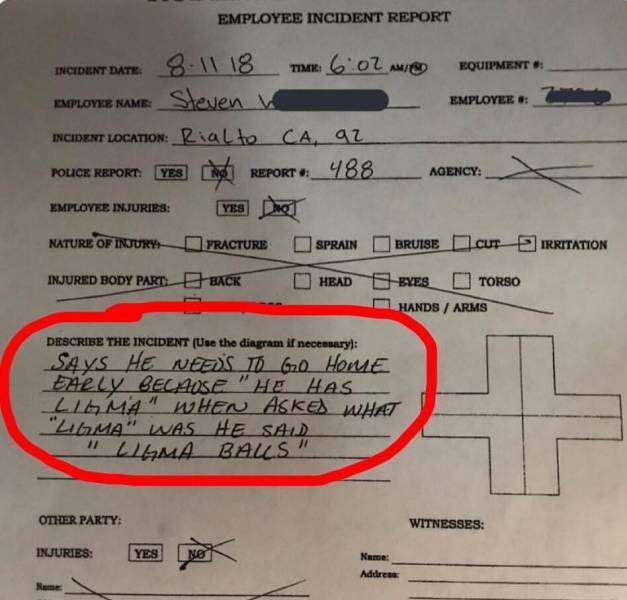 EMPLOYEE INCIDENT REPORT
INCIDENT DATE: 8-11 18 TIME: 6:02 AM/PM EQUIPMENT #:
EMPLOYEE NAME: Steven EMPLOYEE #:
INCIDENT LOCATION: Rialto CA, 92
POLICE REPORT: YES NO REPORT #: 488 AGENCY:
EMPLOYEE INJURIES: YES NO
NATURE OF INJURY: FRACTURE SPRAIN BRUISE CUT IRRITATION
INJURED BODY PART: BACK HEAD EYES TORSO
HANDS / ARMS
DESCRIBE THE INCIDENT (Use the diagram if necessary):
SAYS HE NEEDS TO GO HOME
EARLY BECAUSE "HE HAS
LIGMA" WHEN ASKED WHAT
"LIGMA" WAS HE SAID
"LIGMA BALLS"
OTHER PARTY:
WITNESSES:
INJURIES: YES NO
Name:
Address:
Name: